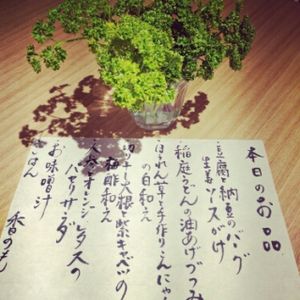 本日のお品
豆腐と納豆のバーグ
生姜ソースがけ
稲庭うどんの油あげづつみ
ほうれん草と手作りこんにゃくの白和え
切り干大根と紫キャベツの
梅酢和え
オレンジ レタスの
パセリサラダ
お味噌汁
ごはん 香のもの